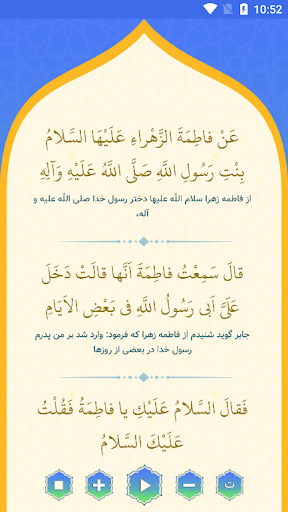 10:52
عَنْ فاطِمَةَ الزَّهْراءِ عَلَيْهَا السَّلامُ
بِنْتِ رَسُولِ اللَّهِ صَلَّى اللَّهُ عَلَيْهِ وَآلِهِ
از فاطمه زهرا سلام اللّه علیها دختر رسول خدا صلی اللّه علیه و
آله،
قالَ سَمِعْتُ فاطِمَةَ اَنَّها قالَتْ دَخَلَ
عَلَىَّ اَبى رَسُولُ اللَّهِ فى بَعْضِ الاَيَّامِ
جابر گوید شنیدم از فاطمه زهرا که فرمود: وارد شد بر من پدرم
رسول خدا در بعضی از روزها
فَقالَ السَّلامُ عَلَيْكِ يا فاطِمَةُ فَقُلْتُ
عَلَيْكَ السَّلامُ
ت